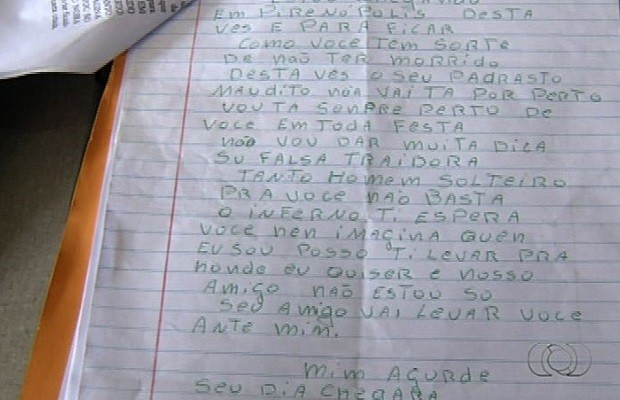 EM PIRENÓPOLIS DESTA
VES E PARA FICAR
COMO VOCE TEM SORTE
DE NÃO TER MORRIDO
DESTA VES O SEU PADRASTO
MAUDITO NÃO VAI TA POR PERTO
VOU TA SENPRE PERTO DE
VOCE EM TODA FESTA
NÃO VOU DAR MUITA DICA
SU FALSA TRAIDORA
TANTO HOMEM SOLTEIRO
PRA VOCE NÃO BASTA
O INFERNO TI ESPERA
VOCE NEN IMAGINA QUEN
EU SOU POSSO TI LEVAR PRA
NONDE EU QUISER E NOSSO
AMIGO NÃO ESTOU SO
SEU AMIGO VAI LEVAR VOCE
ANTE MIM.
MIM AGURDE
SEU DIA CHEGARA